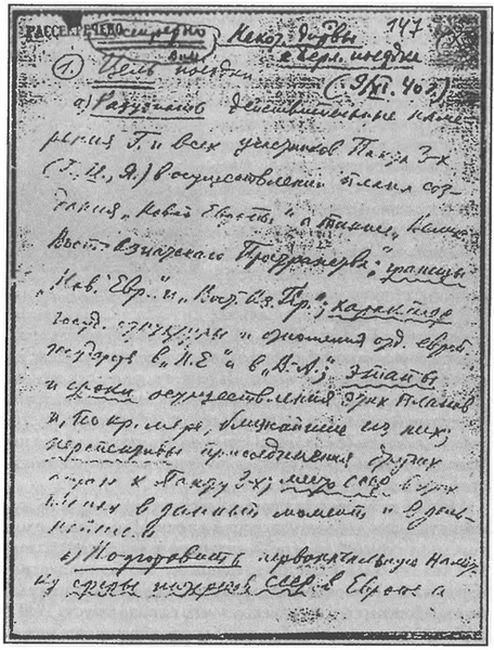 РАССЕКРЕЧЕНО
147
Некот. директивы
к Берл. поездке
(9/XI. 40 г.)
1. Цель поездки
а) Разузнать действительные наме
рения Г. и всех участников Пакта 3-х
(Г., И., Я.) в осуществлении плана соз-
дания „Новой Европы“, а также „Велик.
Вост.-Азиатского Пространства“; границы
„Нов. Евр.“ и „Вост.-Аз. Пр.“; характер
госуд. структуры и отношения отд. европ.
государств в „Н.Е.“ и в „В.-А.“; этапы
и сроки осуществления этих планов
и, по кр. мере, ближайшие из них;
перспективы присоединения других
стран к Пакту 3-х; место СССР в этих
планах в данный момент и в даль-
нейшем.
б) Подготовить первоначальную намет-
ку сферы интересов СССР в Европе, а